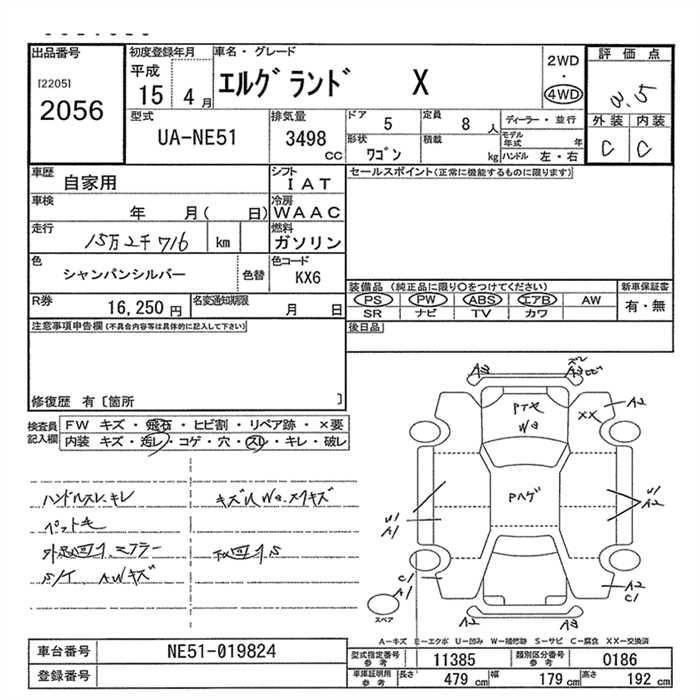 出品番号
[2205]
2056
初度登録年月
平成
15 4月
車名・グレード
エルグランド X
2WD
・
4WD
評価点
3.5
外装 内装
C C
型式
UA-NE51
排気量
3498
CC
ドア
5
定員
8人
ディーラー・並行
形状
ワゴン
積載
kg
モデル
年式 年
ハンドル 左・右
車歴
自家用
シフト
IAT
車検
年 月( 日)
冷房
WAAC
走行
15万2千716 km
燃料
ガソリン
色
シャンパンシルバー
色替
色コード
KX6
R券
16,250円
名変通知期限
月 日
セールスポイント(正常に機能するものに限ります)
装備品 (純正品に限り○をつけてください)
PS PW ABS エアB AW
SR ナビ TV カワ
新車保証書
有・無
後日品
注意事項申告欄(不具合内容等は具体的に記入して下さい)
修復歴 有〔箇所 〕
検査員
記入欄
FW キズ・飛石・ヒビ割・リペア跡・×要
内装 キズ・汚レ・コゲ・穴・スレ・キレ・破レ
ハンドルスレ、キレ
ペット毛
AWキズ
A2
XX
A2
Pハゲ
U1
A1
U1
A2
C1
A1
A2
C1
スペア
A2
A―キズ E―エクボ U―凹み W―補修跡 S―サビ C―腐食 XX―交換済
車台番号
NE51-019824
登録番号
型式指定番号
参考
11385
類別区分番号
参考
0186
車庫証明用
参考
長さ
479 cm
幅
179 cm
高さ
192 cm